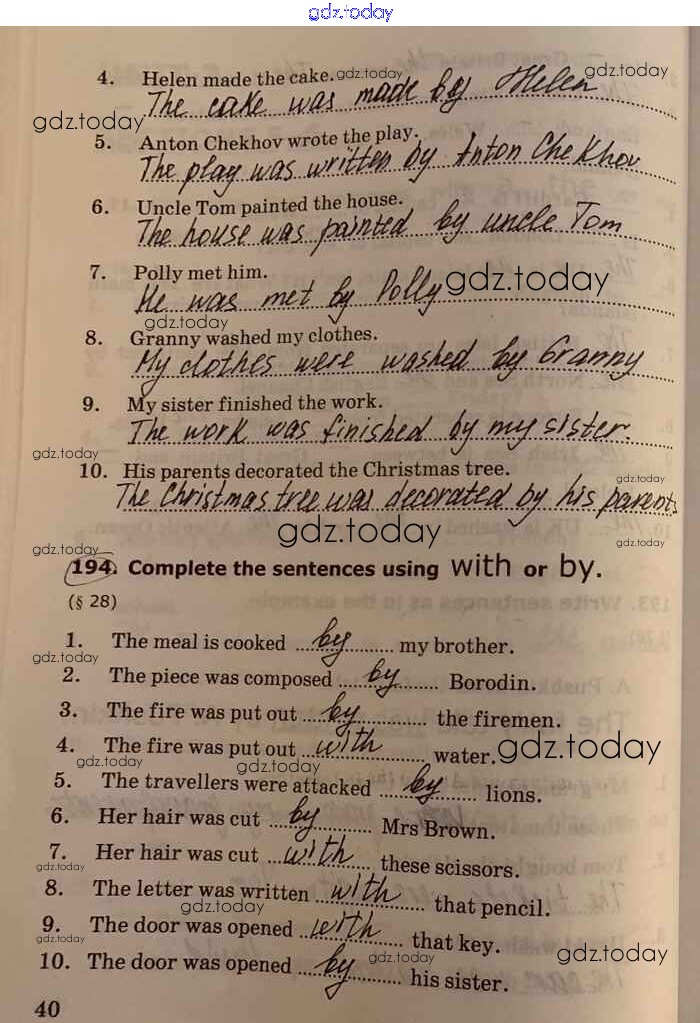 gdz.today
4. Helen made the cake. gdz.today
The cake was made by Helen gdz.today
gdz.today
5. Anton Chekhov wrote the play.
The play was written by Anton Chekhov
6. Uncle Tom painted the house.
The house was painted by uncle Tom
7. Polly met him.
He was met by Polly gdz.today
gdz.today
8. Granny washed my clothes.
My clothes were washed by Granny
9. My sister finished the work.
The work was finished by my sister.
gdz.today
10. His parents decorated the Christmas tree. gdz.today
The Christmas tree was decorated by his parents
gdz.today gdz.today gdz.today
194. Complete the sentences using with or by.
(§ 28)
1. The meal is cooked by my brother.
gdz.today
2. The piece was composed by Borodin.
3. The fire was put out by the firemen.
4. The fire was put out with water. gdz.today
gdz.today gdz.today
5. The travellers were attacked by lions.
6. Her hair was cut by Mrs Brown.
7. Her hair was cut with these scissors.
gdz.today
8. The letter was written with that pencil.
gdz.today
9. The door was opened with that key.
gdz.today gdz.today gdz.today
10. The door was opened by his sister.
40